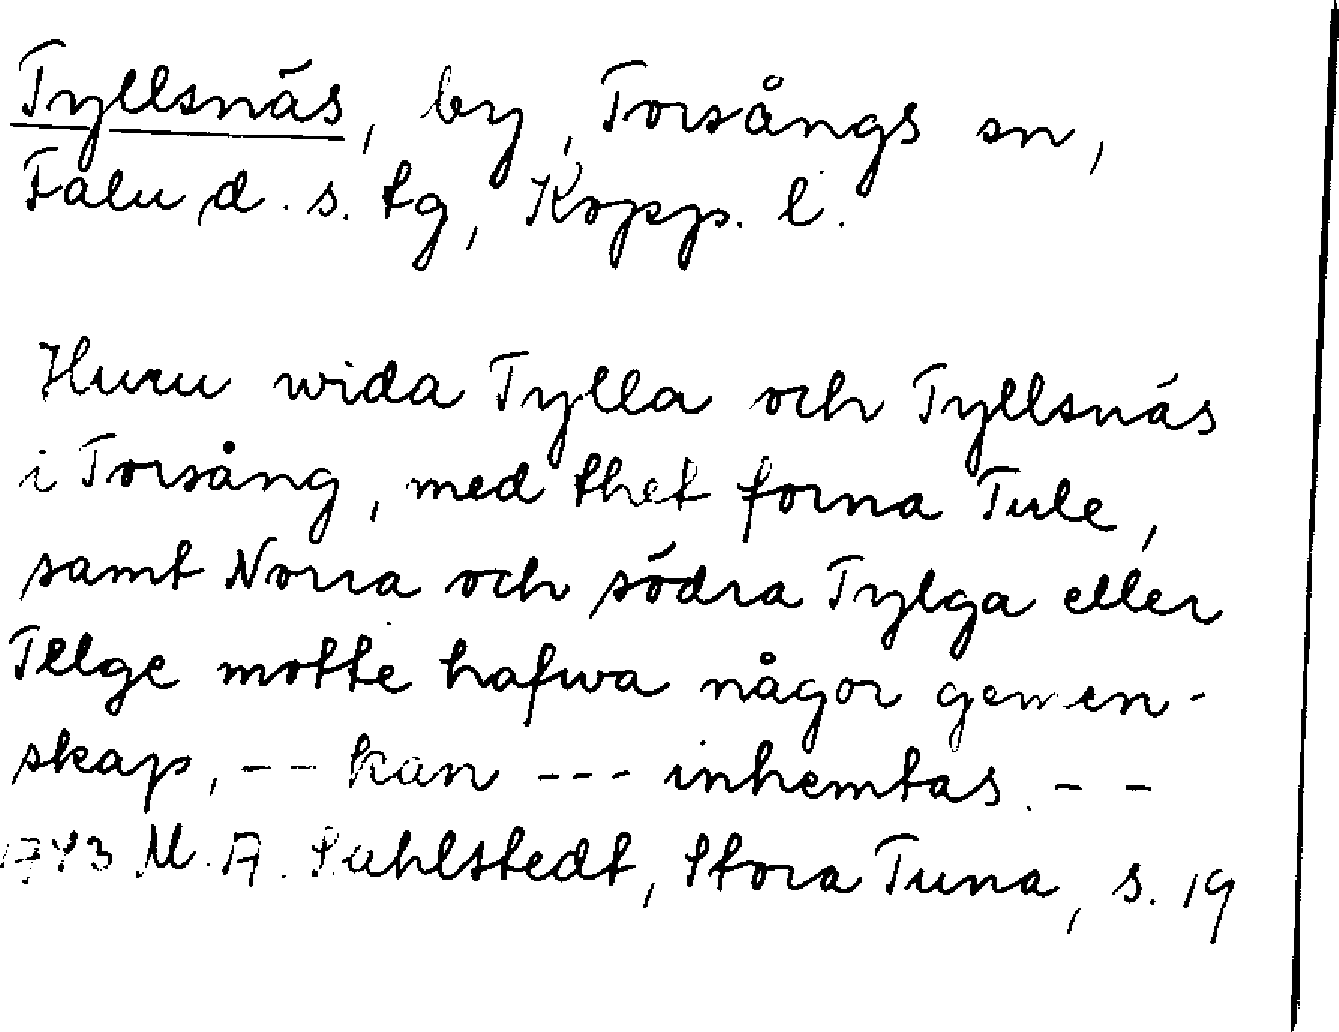 Tyllsnäs, by, Torsångs sn,
Falu d. s. tg, Kopp. l.
Huru wida Tylla och Tyllsnäs
i Torsång, med thet forna Tule,
samt Norra och södra Tylga eller
Tellge motte hafwa någor gemen-
skap, -- kan --- inhemtas. --
1743 M. A. Sahlstedt, Stora Tuna, s. 19